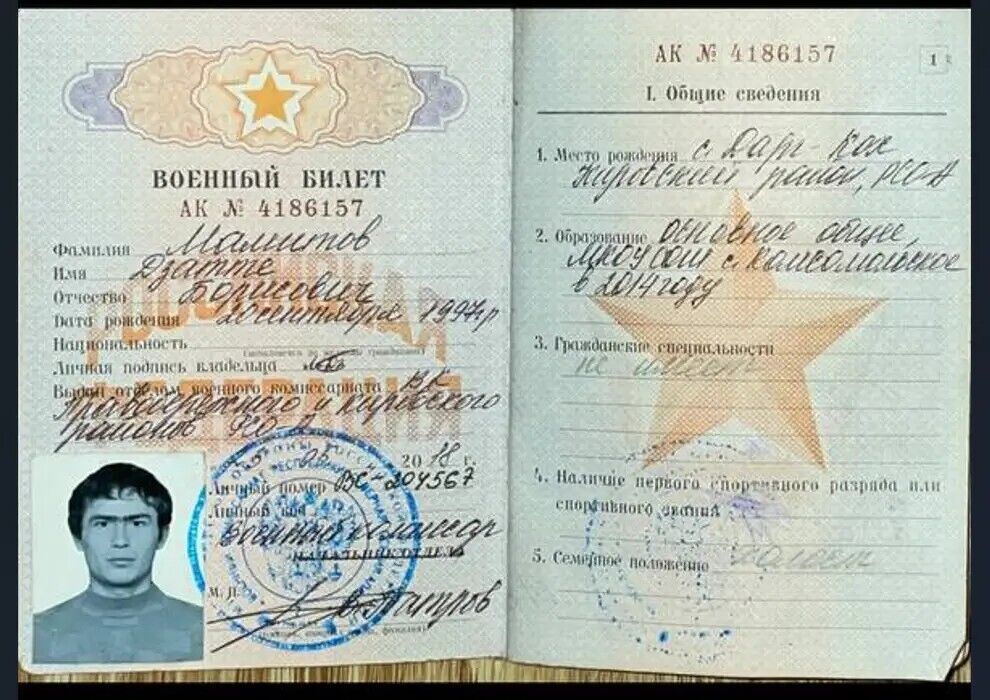 ВОЕННЫЙ БИЛЕТ
АК № 4186157
Фамилия Мамитов
Имя Дзатте
Отчество Борисович
Дата рождения 20 сентября 1997 г.
Национальность
Личная подпись владельца
Выдан отделом военного комиссариата ВК
Правобережного и Кировского
районов РСО-А
2018 г.
Личный номер ВС-204567
Личный код
Военный комиссар
НАЧАЛЬНИК ОТДЕЛА
М. П.
АК № 4186157
1
I. Общие сведения
1. Место рождения с. Дарг-Кох
Кировский район, РСО-А
2. Образование основное общее,
МКОУ СОШ с. Комсомольское
в 2014 году
3. Гражданские специальности
не имеет
4. Наличие первого спортивного разряда или
спортивного звания
5. Семейное положение